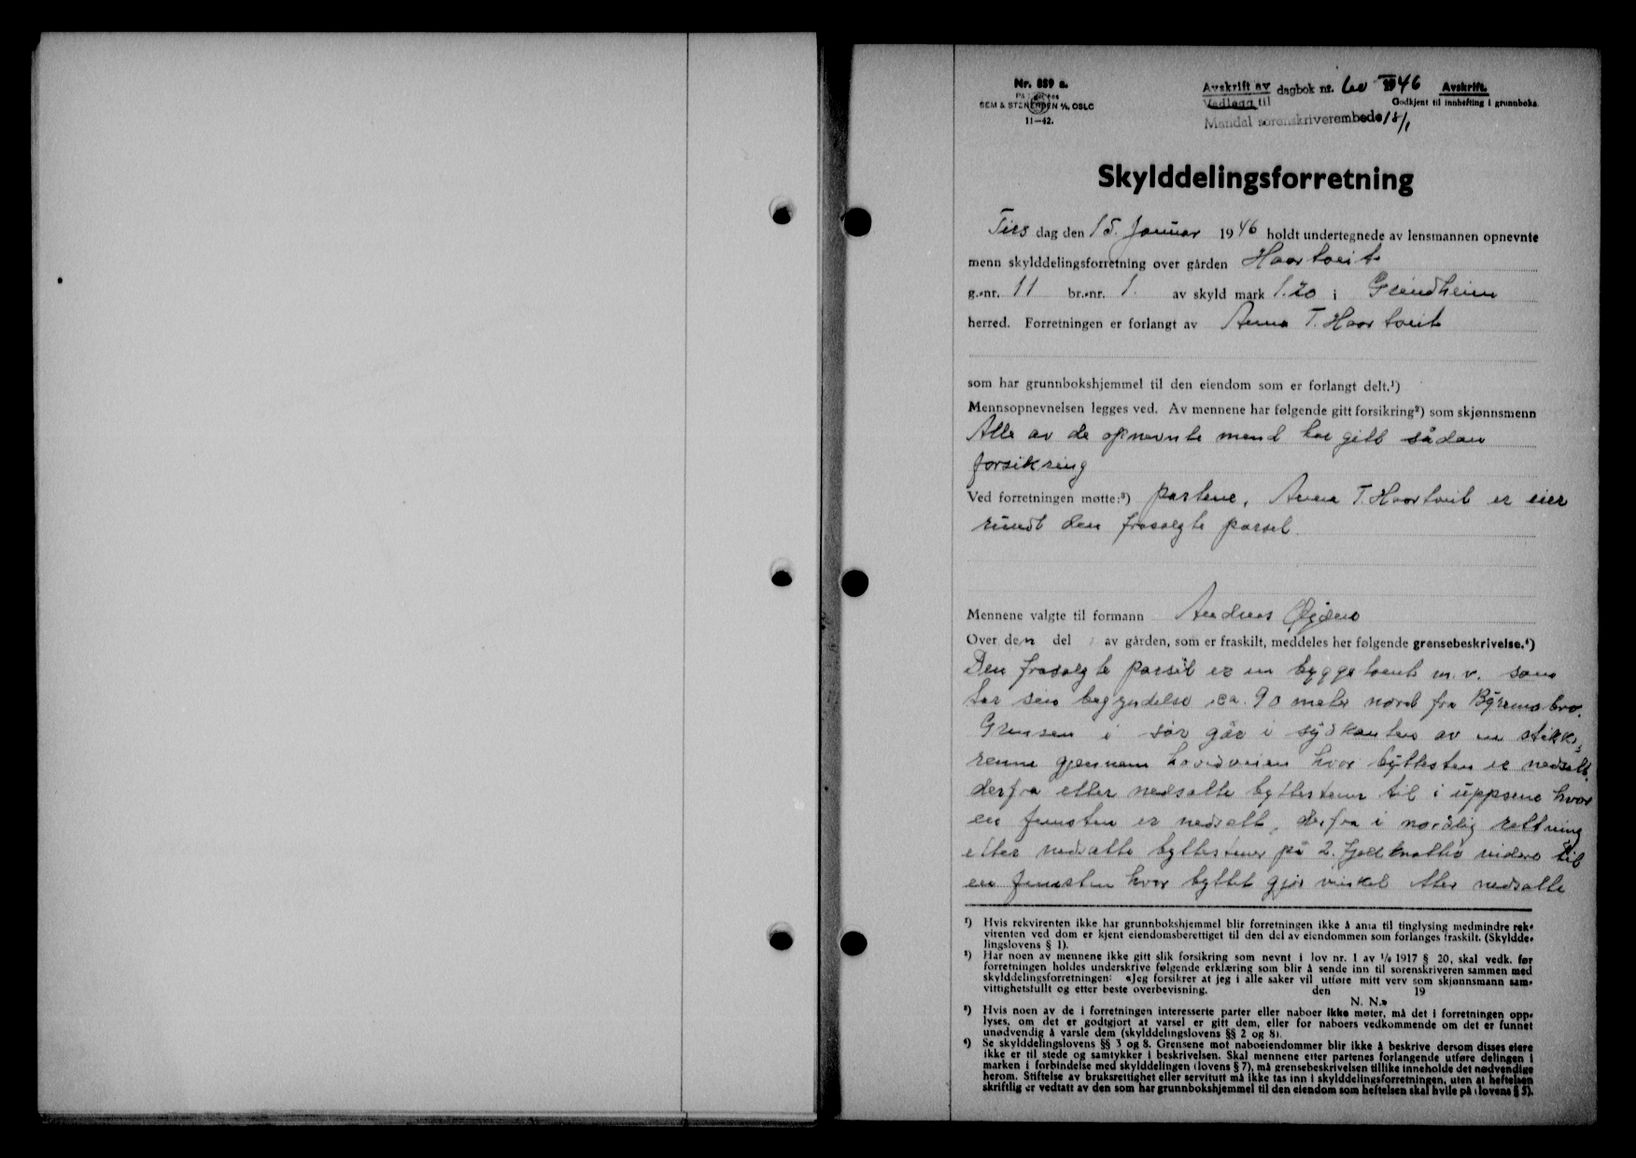 Nr. 859 a.
SEM & STENERSEN A/S, OSLO
11—42.
Avskrift av dagbok nr. 60 1946 Avskrift.
Vedlegg til Godkjent til innhefting i grunnboka.
Mandal sorenskriverembede 18/1
Skylddelingsforretning
Tirs dag den 15. Januar 1946 holdt undertegnede av lensmannen opnevnte
menn skylddelingsforretning over gården Haartveit
g.-nr. 11 br.-nr. 1 av skyld mark 1.20 i Grindheim
herred. Forretningen er forlangt av Anna T. Haartveit
som har grunnbokshjemmel til den eiendom som er forlangt delt.¹)
Mennsopnevnelsen legges ved. Av mennene har følgende gitt forsikring²) som skjønnsmenn
Alle av de opnevnte mend har gitt sådan
forsikring
Ved forretningen møtte:³) partene, Anna T. Haartveit er eier
rundt den frasolgte parsel.
Mennene valgte til formann Andreas Øydna
Over den del av gården, som er fraskilt, meddeles her følgende grensebeskrivelse.⁴)
Den frasolgte parsel er en byggetomt m.v. som
tar sin begyndelse ca. 90 meter nord fra Byremo bro.
Grensen i sør går i sydkanten av en stikk-
renne gjennem hovedveien hvor byttesten er nedsatt,
derfra etter nedsatte byttestener til i uppsene hvor
en femsten er nedsatt, derfra i nordlig rettning
etter nedsatte byttestener på 2. fjellknatter videre til
en femsten hvor byttet gjør vinkel etter nedsatte
¹) Hvis rekvirenten ikke har grunnbokshjemmel blir forretningen ikke å anta til tinglysing medmindre rek-
virenten ved dom er kjent eiendomsberettiget til den del av eiendommen som forlanges fraskilt. (Skyldde-
lingslovens § 1).
²) Har noen av mennene ikke gitt slik forsikring som nevnt i lov nr. 1 av 1/6 1917 § 20, skal vedk. før
forretningen holdes underskrive følgende erklæring som blir å sende inn til sorenskriveren sammen med
skylddelingsforretningen: «Jeg forsikrer at jeg i alle saker vil utføre mitt verv som skjønnsmann sam-
vittighetsfullt og etter beste overbevisning. den 19
N. N.»
³) Hvis noen av de i forretningen interesserte parter eller naboer ikke møter, må det i forretningen opp-
lyses, om det er godtgjort at varsel er gitt dem, eller for naboers vedkommende om det er funnet
unødvendig å varsle dem (skylddelingslovens §§ 2 og 8).
⁴) Se skylddelingslovens §§ 3 og 8. Grensene mot naboeiendommer blir ikke å beskrive dersom disses eiere
ikke er til stede og samtykker i beskrivelsen. Skal mennene etter partenes forlangende utføre delingen i
marken i forbindelse med skylddelingen (lovens § 7), må grensebeskrivelsen tillike inneholde det nødvendige
herom. Stiftelse av bruksrettighet eller servitutt må ikke tas inn i skylddelingsforretningen, uten at heftelsen
skriftlig er vedtatt av den som har grunnbokshjemmel til den eiendom som heftelsen skal hvile på (lovens § 5).